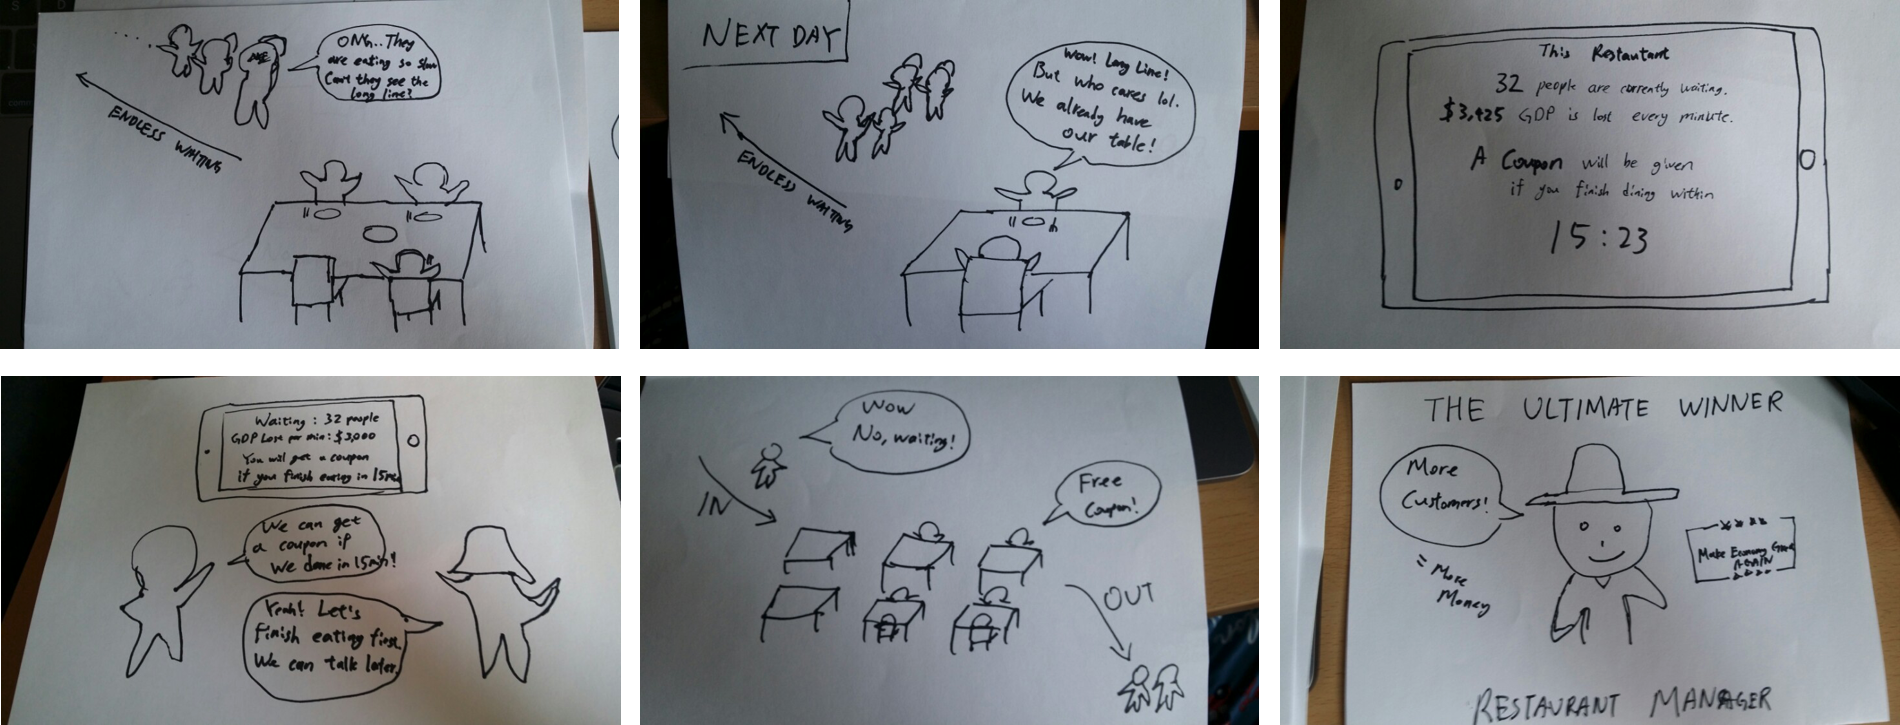 Ohh.. They
are eating so slow
Can't they see the
long line?
ENDLESS WAITING
NEXT DAY
Wow! Long Line!
But who cares lol.
We already have
our table!
ENDLESS WAITING
This Restautant
32 people are currently waiting.
$3,425 GDP is lost every minute.
A Coupon will be given
if you finish dining within
15:23
Waiting : 32 people
GDP Loss per min : $3,000
You will get a coupon
if you finish eating in 15
We can get
a coupon if
we done in 15min!
Yeah! Let's
finish eating first.
We can talk later.
Wow
No, waiting!
IN
Free
Coupon!
OUT
THE ULTIMATE WINNER
More
Customers!
= More
Money
Make Economy Great
AGAIN
RESTAURANT MANAGER